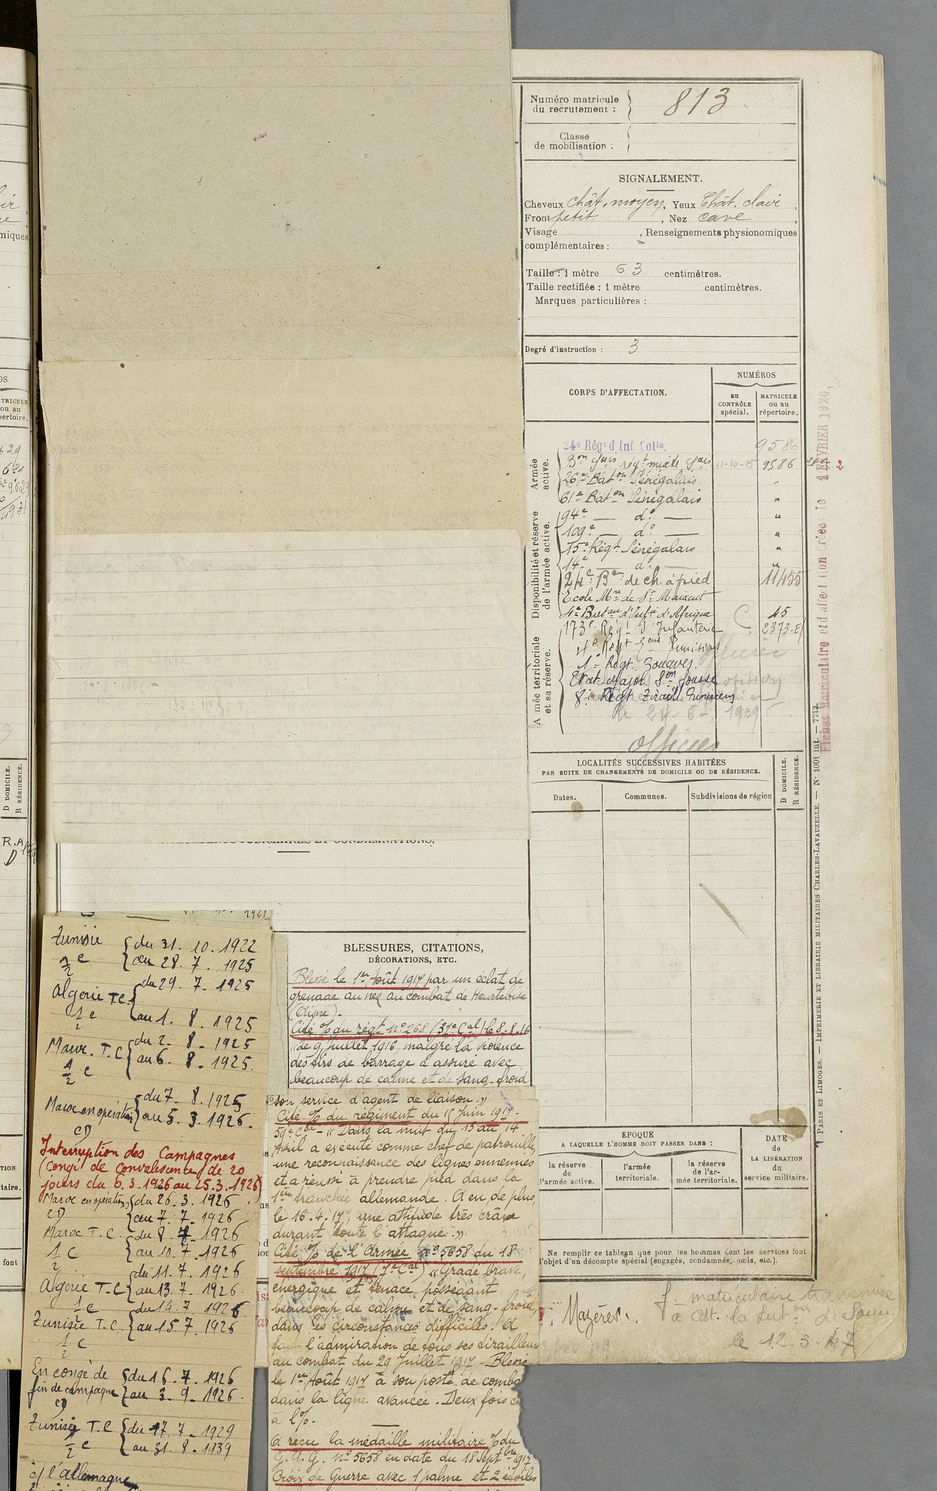 Numéro matricule du recrutement : 813
Classe de mobilisation :
SIGNALEMENT.
Cheveux chât. moyen, Yeux Chât. clair,
Front petit, Nez cave
Visage , Renseignements physionomiques
complémentaires :
Taille : 1 mètre 63 centimètres.
Taille rectifiée : 1 mètre centimètres.
Marques particulières :
Degré d'instruction : 3
CORPS D'AFFECTATION.
NUMÉROS
au CONTRÔLE spécial.
MATRICULE ou au répertoire.
Armée active.
Disponibilité et réserve de l'armée active.
A mée territoriale et sa réserve.
24e Régt d'Inf Colle. 9586
11-10-15 9586
26e Baton Sénégalais "
61e Baton Sénégalais "
94e — do — "
109e — do — "
15e Régt Sénégalais "
14e — do — "
24e Bon de ch. à pied 11455
Ecole Mre de St Maixent
4e Baton d'Infie d'Afrique C 15
173e Régt d'Infanterie 2373-E
1er Régt Zouaves
Etat Major Son Sousse
8e Régt Tiraill. Tunisiens
le 24-6-1939
officier
LOCALITÉS SUCCESSIVES HABITÉES
PAR SUITE DE CHANGEMENTS DE DOMICILE OU DE RÉSIDENCE.
Dates.
Communes.
Subdivisions de région
D DOMICILE.
R RÉSIDENCE.
BLESSURES, CITATIONS,
DÉCORATIONS, ETC.
Blessé le 1er Août 1917 par un éclat de
grenade au nez au combat de Heurtebise
(Aisne).-
Cité % du régt no 268 (5e Cal) le 8-8-16
le 9 juillet 1916 malgré la violence
des tirs de barrage a assuré avec
beaucoup de calme et de sang-froid
son service d'agent de liaison."
Cité % du régiment du 15 Juin 1917-
"Dans la nuit du 13 au 14
Avril a exécuté comme chef de patrouille
une reconnaissance des lignes ennemies
et a réussi à prendre pied dans la
1ère tranchée allemande. A eu de plus,
le 16-4-17, une attitude très crâne
durant toute l'attaque."
Cité % de l'Armée no 5658 du 18
septembre 1917 "Gradé brave,
énergique et tenace, possédant
beaucoup de calme et de sang-froid
dans les circonstances difficiles. A
l'admiration de tous ses tirailleurs
au combat du 29 Juillet 1917 - Blessé
le 1er Août 1917 à son poste de comba
dans la ligne avancée. Deux fois c
à l'%.-
A reçu la médaille militaire % du
G.Q.G. no 5658 en date du 18 Septbre 1917
Croix de Guerre avec 1 palme et 2 étoiles
Tunisie du 31. 10. 1922
½ c au 28. 7. 1925
Algérie T.C. du 29. 7. 1925
½ c au 1. 8. 1925
Maroc. T.C du 2. 8. 1925
½ c au 6. 8. 1925.
Maroc en opération du 7. 8. 1925
CD au 5. 3. 1926.
Interruption des Campagnes
(congé de convalescence de 20
jours du 6.3.1926 au 25.3.1926)
Maroc en opération du 26. 3. 1926
CD au 7. 7. 1926
Maroc T.C. du 8. 7. 1926
½ C au 10. 7. 1926
Algérie T.C du 11. 7. 1926
½ c au 13. 7. 1926.
Tunisie T.C. du 14. 7. 1926
½ C au 15. 7. 1926
En congé de du 16. 7. 1926
fin de campagne au 3. 9. 1926.
Tunisie T.C du 17. 7. 1929
½ c au 31. 8. 1939
c/ l'allemagne
ÉPOQUE
A LAQUELLE L'HOMME DOIT PASSER DANS :
la réserve de l'armée active.
l'armée territoriale.
la réserve de l'armée territoriale.
DATE de LA LIBÉRATION du service militaire.
Ne remplir ce tableau que pour les hommes dont les services font
l'objet d'un décompte spécial (engagés, condamnés, omis, etc.).
Mazères.
le 12.3.47
PARIS ET LIMOGES. — IMPRIMERIE ET LIBRAIRIE MILITAIRES CHARLES-LAVAUZELLE. — No 1001 int. — 7743.